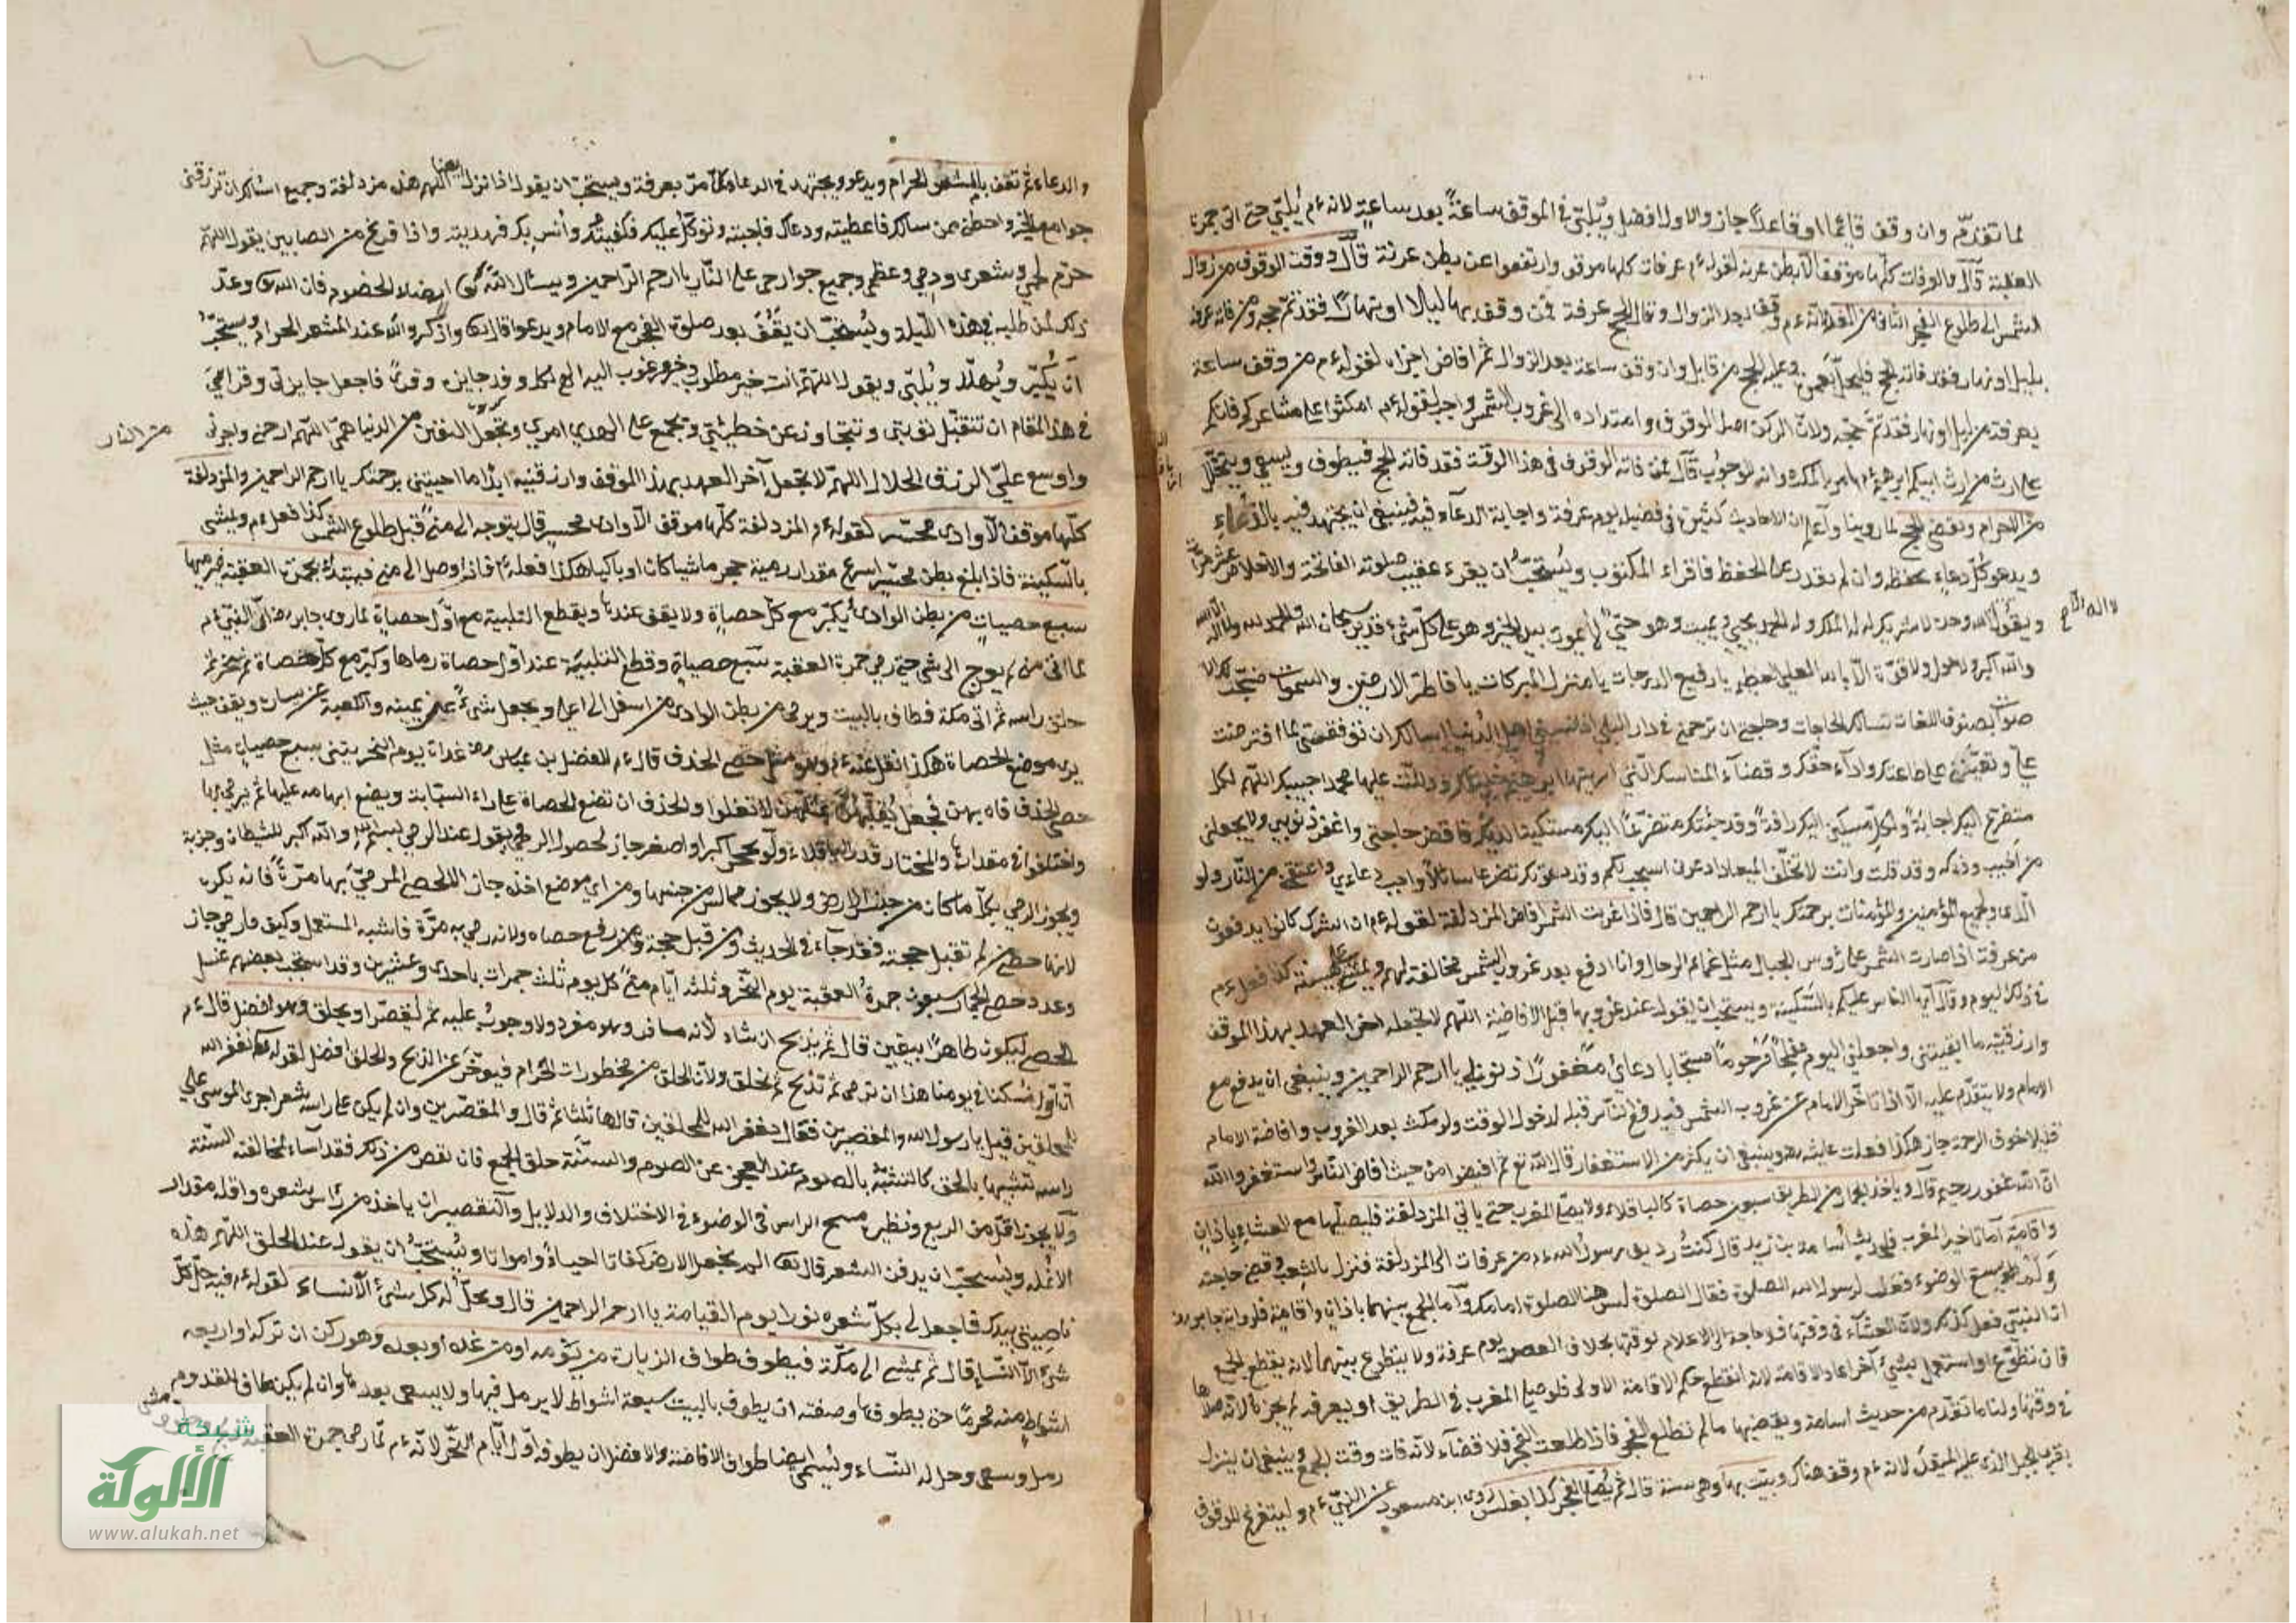 لما تقدم وان وقف قائما او قاعدا جاز والاول افضل ويلبي في الموقف ساعة بعد ساعة لانه ءم يلبي حتى اتى جمرة
العقبة قال وعرفات كلها موقف الا بطن عرنة لقوله ءم عرفات كلها موقف وارتفعوا عن بطن عرنة قال ووقت الوقوف من زوال
الشمس الى طلوع الفجر الثاني من الغد لانه ءم وقف بعد الزوال وقال الحج عرفة فمن وقف بها ليلا او نهارا فقد تم حجه ومن فاته عرفة
بليل او نهار فقد فاته الحج فليحل بعمرة وعليه الحج من قابل وان وقف ساعة بعد الزوال ثم افاض اجزاه لقوله ءم من وقف ساعة
بعرفة من ليل او نهار فقد تم حجه ولان الركن اصل الوقوف وامتداده الى غروب الشمس واجب لقوله ءم امكثوا على مشاعركم فانكم
على ارث من ارث ابيكم ابرهيم ءم امر بالمكث وانه للوجوب قال فمن فاته الوقوف في هذا الوقت فقد فاته الحج فيطوف ويسعى ويتحلل
من الاحرام ويقضي الحج لما روينا واعلم ان الاحاديث كثيرة في فضيل يوم عرفة واجابة الدعاء فيه فينبغي ان يجتهد فيه بالدعاء
ويدعو كل دعاء يحفظه وان لم يقدر على الحفظ فاقراء المكتوب ويستحب ان يقرء عقيب صلوته الفاتحة والاخلاص عشر مرات
ويقول الله وحده لا شريك له له الملك وله الحمد يحيي ويميت وهو حي لا يموت بيده الخير وهو على كل شيء قدير سبحان الله والحمد لله ولا اله الا الله
والله اكبر ولا حول ولا قوة الا بالله العلي العظيم يا رفيع الدرجات يا منزل البركات يا فاطر الارضين والسموات ضجت لك الا
صوات بصنوف اللغات تسالك الحاجات وحاجتي ان ترحمني في دار البلى اذا نسيني اهل الدنيا اسالك ان توفقني لما افترضت
علي وتعينني على طاعتك واداء حقك وقضاء المناسك التي اريتها ابرهيم خليلك ودللت عليها محمدا حبيبك اللهم لكل
متضرع اليك اجابة ولكل مسكين اليك رافة وقد جئتك متضرعا اليك مستكينا لديك فاقض حاجتي واغفر ذنوبي ولا يجعلني
من اخيب وفدك وقد قلت وانت لا تخلف الميعاد ادعوني استجب لكم وقد دعوتك متضرعا سائلا واجب دعاءي واعتقني من النار ولو
الدي ولجميع المؤمنين والمؤمنات برحمتك يا ارحم الراحمين قال فاذا غربت الشمس افاض المزدلفة لقوله ءم ان الشرك كانوا يدفعون
من عرفة اذا صارت الشمس على رؤس الجبال مثل عمائم الرجال وانا ادفع بعد غروب الشمس مخالفة لهم ويمشي على هينته كذا فعل ءم
في ذلك اليوم وقال ايها الناس عليكم بالسكينة ويستحب ان يقول عند غروبها قبل الافاضة اللهم لا تجعله اخر العهد بهذا الموقف
وارزقنيه ما ابقيتني واجعلني اليوم مفلحا مرحوما مستجابا دعائي مغفورا ذنوبي يا ارحم الراحمين وينبغي ان يدفع مع
الامام ولا يتقدم عليه الا اذا تاخر الامام عن غروب الشمس فيدفع الناس قبله لدخول الوقت ولو مكث بعد الغروب وافاضة الامام
قليلا خوف الزحمة جاز هكذا فعلت عايشة وينبغي ان يكثر من الاستغفار قال الله تع ثم افيضوا من حيث افاض الناس واستغفروا الله
ان الله غفور رحيم قال وياخذ الجمار من الطريق سبعين حصاة كالباقلاء ولا يصلي المغرب حتى ياتي المزدلفة فيصليها مع العشاء باذان
واقامة اما تاخير المغرب فلحديث اسامة بن زيد قال كنت رديف رسول الله ءم من عرفات الى المزدلفة فنزل بالشعب وقضى حاجته
ولم يسبغ الوضوء فقلت لرسول الله الصلوة فقال الصلوة ليس هنا الصلوة امامك واما الجمع بينهما باذان واقامة فلرواية جابر رض
ان النبي فعل كذلك ولان العشاء في وقتها فلا حاجة الى الاعلام لوقتها بخلاف العصر يوم عرفة ولا يتطوع بينهما لانه يقطع الجمع
فان تطوع او استعمل بشيء آخر اعاد الاقامة لانه انقطع حكم الاقامة الاولى فلو صلى المغرب في الطريق او بعرفة لم يجز لانه صلاها
في وقتها ولنا ما تقدم من حديث اسامة ويقضيها ما لم تطلع الفجر فاذا طلعت الفجر فلا قضاء لانه فات وقت الجمع وينبغي ان ينزل
بقرب الجبل الذي عليه الميقدة لانه ءم وقف هناك ويبيت بها وهي سنة قال ثم يصلي الفجر كذا بغلس روى ابن مسعود عن النبي ءم وليتفرغ للوقوف
لا اله الا
والدعاء ثم تقف بالمشعر الحرام ويدعو ويجتهد في الدعاء كما مر بعرفة ويستحب ان يقول اذا نزل بها اللهم هذه مزدلفة وجميع اسالك ان ترزقني
جوامع الخير واجعلني ممن سالك فاعطيته ودعاك فاجبته وتوكل عليك فكفيته وانس بك فهديته واذا فرغ من الصلاتين يقول اللهم
حرم لحمي وشعري ودمي وعظمي وجميع جوارحي على النار يا ارحم الراحمين ويسال الله تعالى ارضاء الخصوم فان الله تع وعد
ذلك لمن طلبه في هذه الليلة ويستحب ان يقف بعد صلوة الفجر مع الامام ويدعو قال تعالى واذكروا الله عند المشعر الحرام ويستحب
ان يكبر ويهلل ويلبي ويقول اللهم انت خير مطلوب وخير مرغوب اليه الهي لكل وفد جايزة وقرى فاجعل جايزتي وقراي
في هذا المقام ان تتقبل توبتي وتتجاوز عن خطيئتي وتجمع على الهدى امري وتجعل اليقين من الدنيا همي اللهم ارحمني واجرني
من النار
واوسع علي الرزق الحلال اللهم لا تجعل آخر العهد بهذا الموقف وارزقنيه ابدا ما احييتني برحمتك يا ارحم الراحمين والمزدلفة
كلها موقف الا وادي محسر لقوله ءم والمزدلفة كلها موقف الا وادي محسر قال يتوجه الى منى قبل طلوع الشمس كذا فعل ءم ويمشي
بالسكينة فاذا بلغ بطن محسر اسرع مقدار رمية حجر ماشيا كان او راكبا هكذا فعله ءم فاذا وصل الى منى فيبتدئ بجمرة العقبة فيرميها
سبع حصيات من بطن الوادي يكبر مع كل حصاة ولا يقف عندها ويقطع التلبية مع اول حصاة لما روى جابر رض ان النبي ءم
لما اتى منى لم يعرج الى شيء حتى رمى جمرة العقبة سبع حصيات وقطع التلبية عند اول حصاة رماها وكبر مع كل حصاة ثم نحر ثم
حلق راسه ثم اتى مكة فطاف بالبيت ويرمي من بطن الوادي من اسفل الى اعلى ويجعل منى عن يمينه والكعبة عن يساره ويقف حيث
يرى موضع الحصاة هكذا نقل عنه ءم وهو مثل حصى الخذف قال ءم للفضل بن عباس رض غداة يوم النحر يتني بسبع حصيات مثل
حصى الخذف فاه بهن فجعل يقلبهن بمثلهن لا تغلوا والخذف ان تضع الحصاة على راء السبابة ويضع ابهامه عليها ثم يرمي بها
واختلفوا في مقدارها والمختار قدر الباقلاء ولو بحجر اكبر او اصغر جاز لحصول الرمي يقول عند الرمي بسم الله والله اكبر للشيطان وحزبه
ويجوز الرمي بكل ما كان من جنس الارض ولا يجوز بما ليس من جنسها ومن اي موضع اخذه جاز الا الحصى المرمي بها مرة فانه يكره
لانها حصى من لم تقبل حجته فقد جاء في الحديث ومن قبل حجة رفع حصاه ولانه رمي به مرة فاشبه المستعمل وكيف ما رمى جاز
وعدد حصى الجمار سبعون جمرة العقبة يوم النحر وثلثة ايام منى كل يوم ثلث جمرات باحدى وعشرين وقد استحب بعضهم غسل
الحصى ليكون طاهرا بيقين قال ثم يذبح ان شاء لانه مسافر وهو مفرد ولا وجوب عليه ثم ليقصر او يحلق وهو افضل قال ءم
ان اول نسكنا في يومنا هذا ان نرمي ثم نذبح ثم نحلق ولان الحلق من محظورات الحرام فيؤخر عن الذبح والحلق افضل لقوله ءم غفر الله
للمحلقين قيل يا رسول الله والمقصرين فقال غفر الله للمحلقين قالها ثلثا ثم قال والمقصرين وان لم يكن على راسه شعر اجرى الموسى على
راسه تشبيها بالحلق كالتشبه بالصوم عند العجز عن الصوم والسنة حلق الجمع فان نقص من ذلك فقد آساء لمخالفة السنة
ولا يجوز اقل من الربع ونظيره مسح الراس في الوضوء في الاختلاف والدلايل والتقصير ان ياخذ من رأس شعره واقله مقدار
الانملة ويستحب ان يدفن الشعر قال تعالى الم نجعل الارض كفاتا احياء وامواتا ويستحب ان يقول عند الحلق اللهم هذه
ناصيتي بيدك فاجعل لي بكل شعرة نورا يوم القيامة يا ارحم الراحمين قال ويحل له كل شيء الا النساء لقوله ءم فيه حل كل
شيء الا النساء قال ثم يمشي الى مكة فيطوف طواف الزيارة من يومه او من غده او بعده وهو ركن ان تركه او اربعة
اشواط منه محرما حتى يطوفها وصفته ان يطوف بالبيت سبعة اشواط لا يرمل فيها ولا يسعى بعدها وان لم يكن طاف القدوم
رمل وسعى وحل له النساء ويسمى ايضا طواف الافاضة والافضل ان يطوفه اول ايام النحر لانه ءم لما رمى جمرة العقبة
شبكة
الألوكة
www.alukah.net